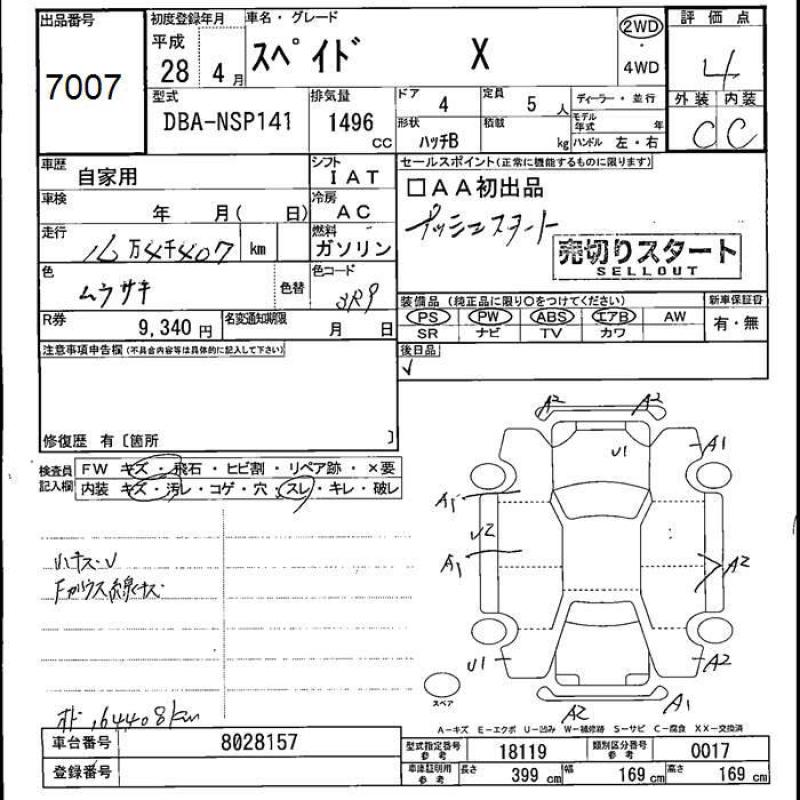 出品番号
7007
初度登録年月
平成
28 4月
車名・グレード
スペイド X
2WD
4WD
評価点
4
外装 内装
C C
型式
DBA-NSP141
排気量
1496
CC
ドア 4
定員 5人
ディーラー・並行
形状 ハッチB
積載 kg
モデル年式 年
ハンドル 左・右
車歴 自家用
シフト IAT
車検 年 月( 日)
冷房 AC
走行 16万4千407 km
燃料 ガソリン
色 ムラサキ
色替
色コード
R券 9,340円
名変通知期限 月 日
セールスポイント(正常に機能するものに限ります)
□AA初出品
プッシュスタート
売切りスタート
SELLOUT
装備品(純正品に限り○をつけてください)
PS PW ABS エアB AW
SR ナビ TV カワ
新車保証書
有・無
後日品
注意事項申告欄(不具合内容等は具体的に記入して下さい)
修復歴 有〔箇所 〕
検査員記入欄
FW キズ・飛石・ヒビ割・リペア跡・×要
内装 キズ・汚レ・コゲ・穴・スレ・キレ・破レ
Fガラス線キズ
164408km
A2 A2
U1
A1
A1
U2
A1
A2
U1
A2
A2
A1
スペア
A-キズ E-エクボ U-凹み W-補修跡 S-サビ C-腐食 XX-交換済
車台番号 8028157
登録番号
型式指定番号参考 18119
類別区分番号参考 0017
車庫証明用参考
長さ 399cm
幅 169cm
高さ 169cm